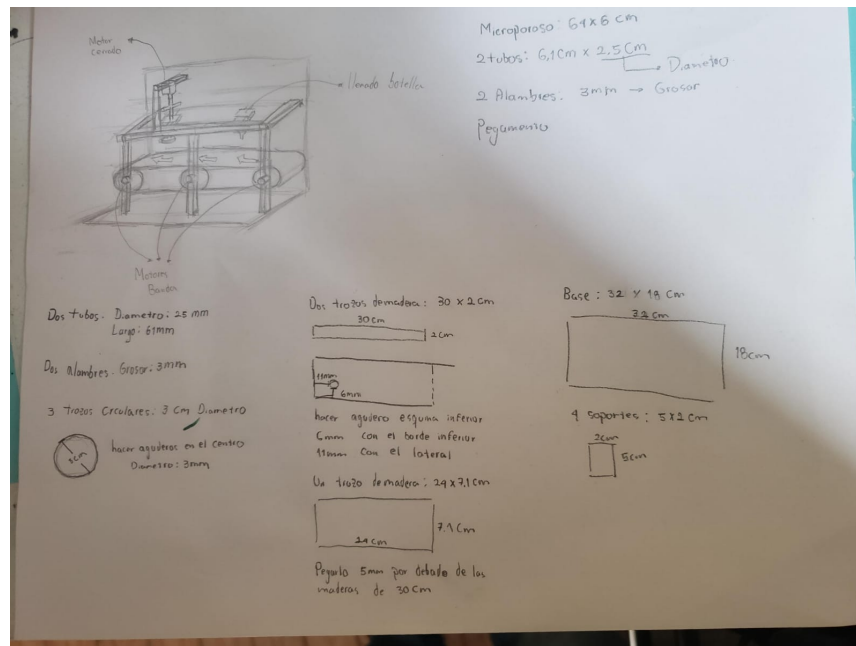 Microporoso: 61x6 cm
2 tubos: 6,1cm x 2.5cm
Diametro
2 Alambres. 3mm → Grosor
Pegamento
Motor
Llenado botella
Motores
Banda
Dos tubos. Diametro: 25 mm
Largo: 61mm
Dos alambres. Grosor: 3mm
3 trozos Circulares: 3 Cm Diametro
3cm
hacer agujeros en el centro
Diametro: 3mm
Dos trozos de madera: 30 x 2 cm
30 cm
2 cm
11mm
6mm
hacer agujero esquina inferior
6mm con el borde inferior
11mm con el lateral
Un trozo de madera: 24 x 7.1 cm
7.1 Cm
24 cm
Pegarlo 5mm por debado de las
maderas de 30 Cm
Base: 32 x 18 Cm
32 cm
18cm
4 soportes: 5x2 cm
2cm
5cm